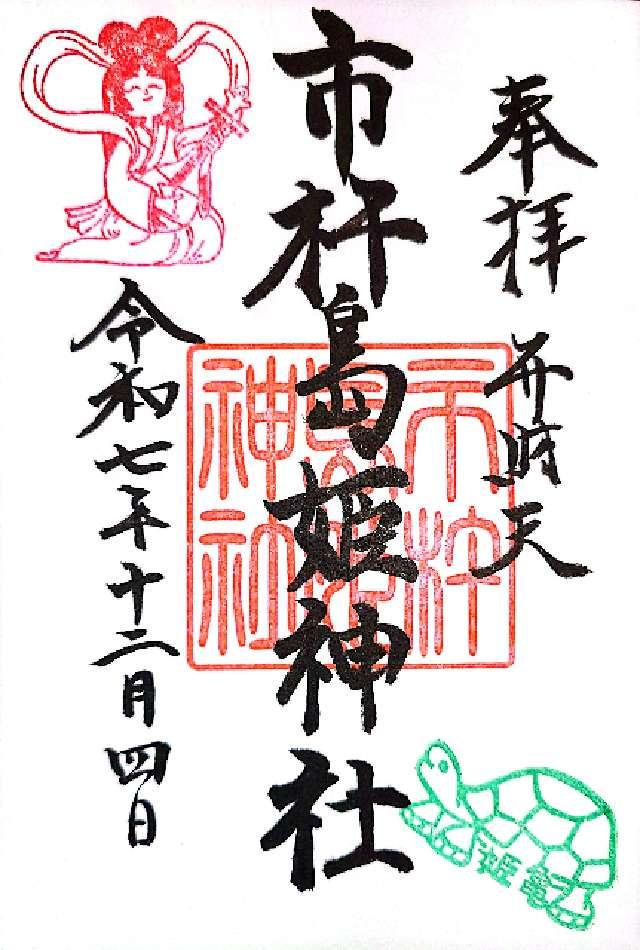 奉拝
弁財天
市杵島姫神社
令和七年十二月四日
市杵島姫神社
姫亀